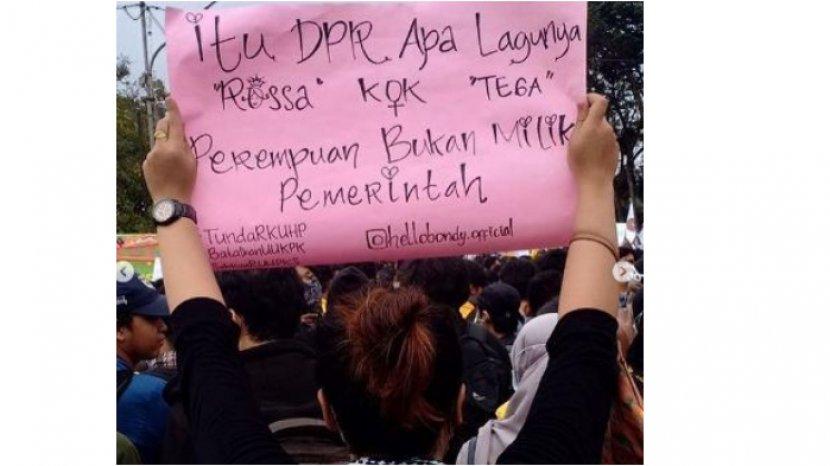 itu DPR Apa Lagunya
"Rossa" KOK "TEGA"
Perempuan Bukan Milik
Pemerintah
TundaRKUHP
BatalkanUUKPK
@hellobondy.official